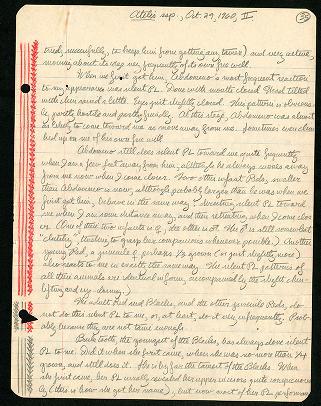 Ateles ssp., Oct. 29, 1960, II.
tried, successfully, to keep him from getting our trees) and very active,
moving about its cage very frequently of its own free will.
When we first got him, Abdomeno's most frequent reaction
to my appearance was silent PL. Done with mouth closed. Head tilted
with chin raised a little. Eyes just slightly closed. This pattern is obvious-
ly partly hostile and partly friendly. At this stage, Abdomeno was almost
as likely to come toward me as move away from me. Sometimes even climb-
bed up on me of his own free will.
Abdomeno still does silent PL toward me quite frequently,
when I am a few feet away from him, although he always moves away
from me now when I come closer. Two other infant Reds, smaller
than Abdomeno is now, although probably larger than he was when we
first got him, behave in the same way (directing silent PL toward
me when I am some distance away, and then retreating when I come clos-
er. One of these two infants is ♂, the other is not. The ♂ is still somewhat
"clutchy", tending to grasp her companions whenever possible.) Another
young Red, a juvenile ♂ perhaps 1/3 grown (or just slightly more)
also reacts to me in exactly the same way. The silent PL patterns of
all these animals are identical in form, accompanied by the slight chin-
lifting and eye-closing.
The adult Red and Blacks, and the other juvenile Reds, do
not do this silent PL to me, or, at least, do it very infrequently. Prob-
ably because they are not tame enough.
Buck tooth, the youngest of the Blacks, has always done silent
PL to me. Did it when she first came, when she was no more than 1/4
grown, and still does it. She is by far the tamest of the Blacks. When
she first came, her PL usually revealed her upper incisors quite conspicuous-
ly (this is how she got her name), but now most of her PL perform-